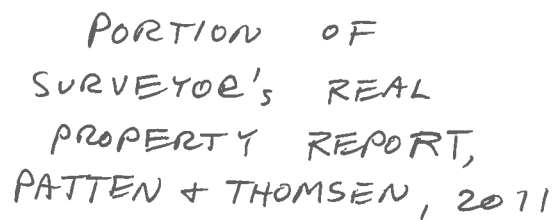 PORTION OF
SURVEYOR'S REAL
PROPERTY REPORT,
PATTEN & THOMSEN, 2011